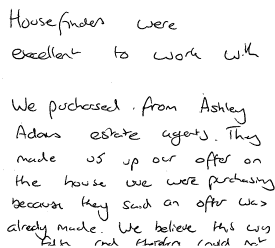 Housefinders were
excellent to work with
We purchased from Ashley
Adams estate agents. They
made us up our offer on
the house we were purchasing
because they said an offer was
already made. We believe this was